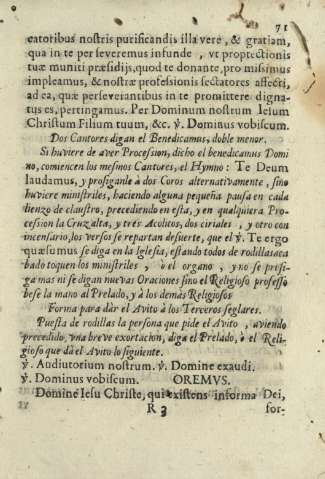 71
catoribus nostris purificandis illa vere, & gratiam,
qua in te perseveremus infunde, vt proptectionis
tuæ muniti præsidijs, quod te donante, pro missimus
impleamus, & nostræ professionis sectatores affecti,
ad ea, quæ perseverantibus in te promittere digna-
tus es, pertingamus. Per Dominum nostrum Iesum
Christum Filium tuum, &c. ℣. Dominus vobiscum.
Dos Cantores digan el Benedicamus, doble menor.
Si huviere de aver Procession, dicho el benedicamus Domi
no, comiencen los mesmos Cantores, el Hymno: Te Deum
laudamus, y prosiganle à dos Coros alternativamente, sino
huviere ministriles, haciendo alguna pequeña pausa en cada
lienzo de claustro, precediendo en esta, y en qualquiera Pro-
cession la Cruz alta, y tres Acolitos, dos ciriales, y otro con
incensario, los versos se repartan desuerte, que el ℣. Te ergo
quæsumus se diga en la Iglesia, estando todos de rodillas aca
bado toquen los ministriles, ò el organo, y no se prosi-
ga mas ni se digan nuevas Oraciones sino el Religioso professo
bese la mano al Prelado, y à los demàs Religiosos
Forma para dàr el Avito à los Terceros seglares.
Puesta de rodillas la persona que pide el Avito, aviendo
precedido, vna breve exortacion, diga el Prelado, ò el Reli-
gioso que dà el Avito lo siguiente.
℣. Audiutorium nostrum. ℣. Domine exaudi.
℣. Dominus vobiscum. OREMVS.
Domine Iesu Christe, qui existens in forma Dei,
R 3 for-